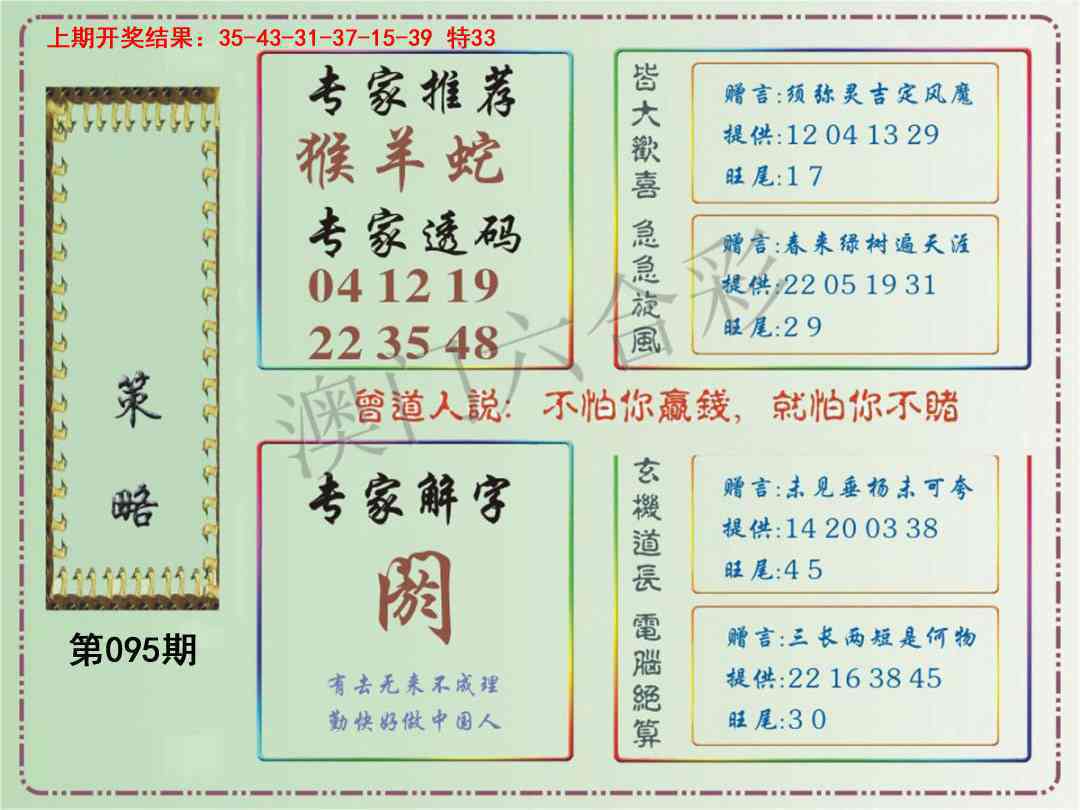 上期开奖结果：35-43-31-37-15-39 特33
策略
第095期
专家推荐
猴羊蛇
专家透码
04 12 19
22 35 48
皆大歡喜
赠言:须弥灵吉定风魔
提供:12 04 13 29
旺尾:1 7
急急旋風
赠言:春来绿树遍天涯
提供:22 05 19 31
旺尾:2 9
澳门六合彩
曾道人説：不怕你贏錢，就怕你不賭
专家解字
阏
有去无来不成理
勤快好做中国人
玄機道長
赠言:未见垂杨未可夸
提供:14 20 03 38
旺尾:4 5
電腦絕算
赠言:三长两短是何物
提供:22 16 38 45
旺尾:3 0